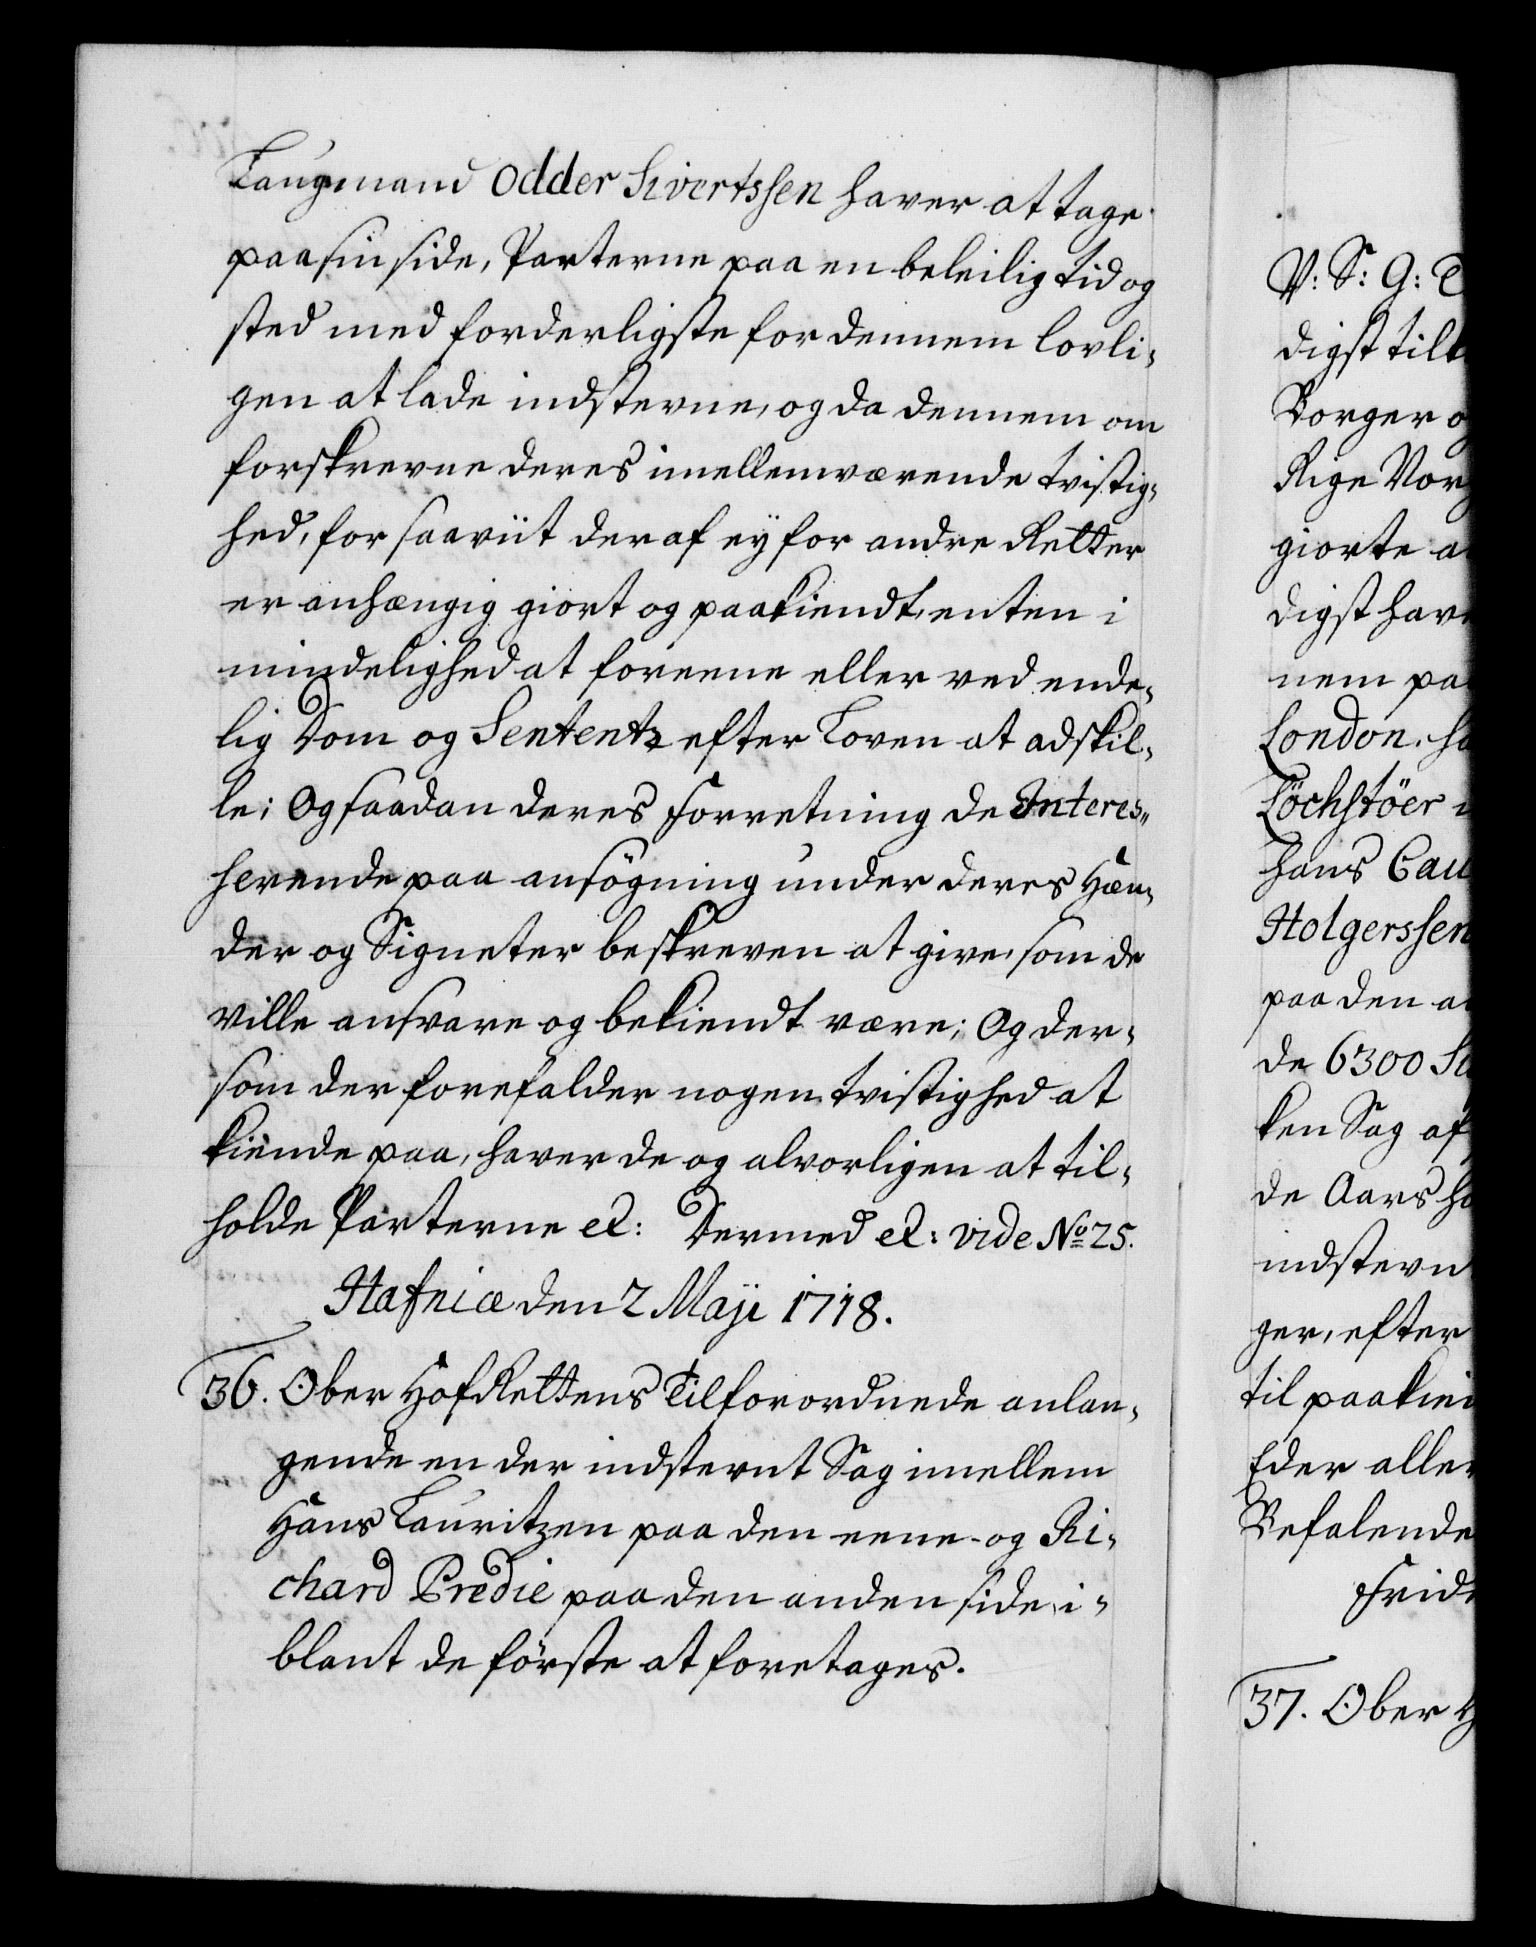 Laugmand Odder Sivertssen haver at tage
paa sin side, Parterne paa en beleilig tid og
sted med forderligste for dennem lovli-
gen at lade indstevne, og da dennem om
forskrevne deres imellemværende tvistig-
hed, for saaviit deraf eÿ for andre Retter
er anhængig giort og paakiendt, enten i
mindelighed at foreene eller ved ende-
lig Dom og Sententz efter Loven at adskil-
le; Og saadan deres Forretning de Interes-
serende paa ansögning under deres Hæn-
der og Signeter beskreven at give, som de
ville ansvare og bekiendt være; Og der-
som der forefalder nogen tvistighed at
kiende paa, haver de og alvorligen at til-
holde Parterne etc: Dermed etc: vide No 25.
Hafniæ den 2 Maji 1718.
36. Ober HofRettens Tilforordnede anlan-
gende en der indstevnt Sag imellem
Hans Lauritzen paa den eene- og Ri-
chard Predie paa den anden side, i-
blant de förste at foretages.
V: S: G: T
digst tilk
Borger og
Rige Nor
giorte a
digst hav
nem pa
London, ha
Löchstöer
hans Cau
Holgerssen
paa den a
de 6300
ken Sag af
de Aars h
indstevn
ger, efter
til paakien
Eder aller
Befalende
Frid
37. Ober H